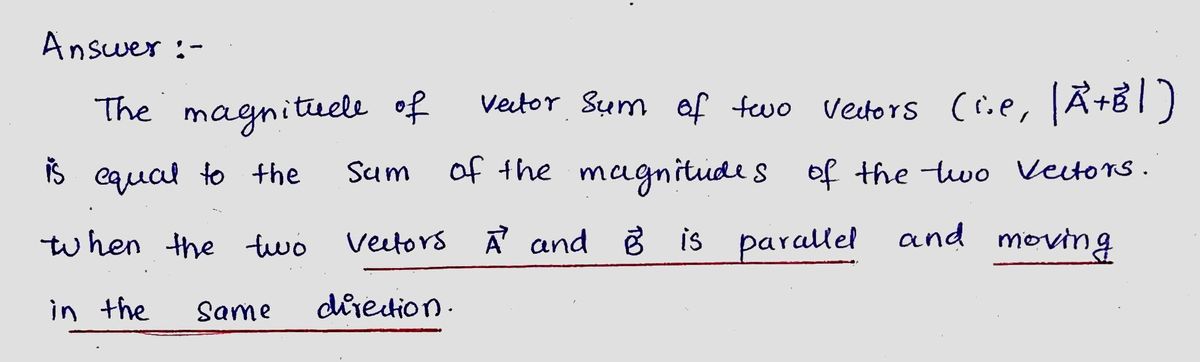 Answer :-
The magnitude of vector Sum of two vectors (i.e, |A⃗+B⃗|)
is equal to the Sum of the magnitudes of the two Vectors.
when the two vectors A⃗ and B⃗ is parallel and moving
in the same direction.